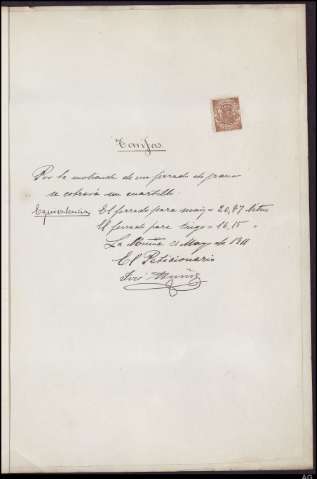 Tarifas
Por la molienda de un ferrado de grano
se cobrará un cuartillo.
Equivalencia El ferrado para maiz = 20,87 litros
El ferrado para trigo = 16,15 "
La Coruña 21 Mayo de 1911
El Peticionario
José Muñiz
AG